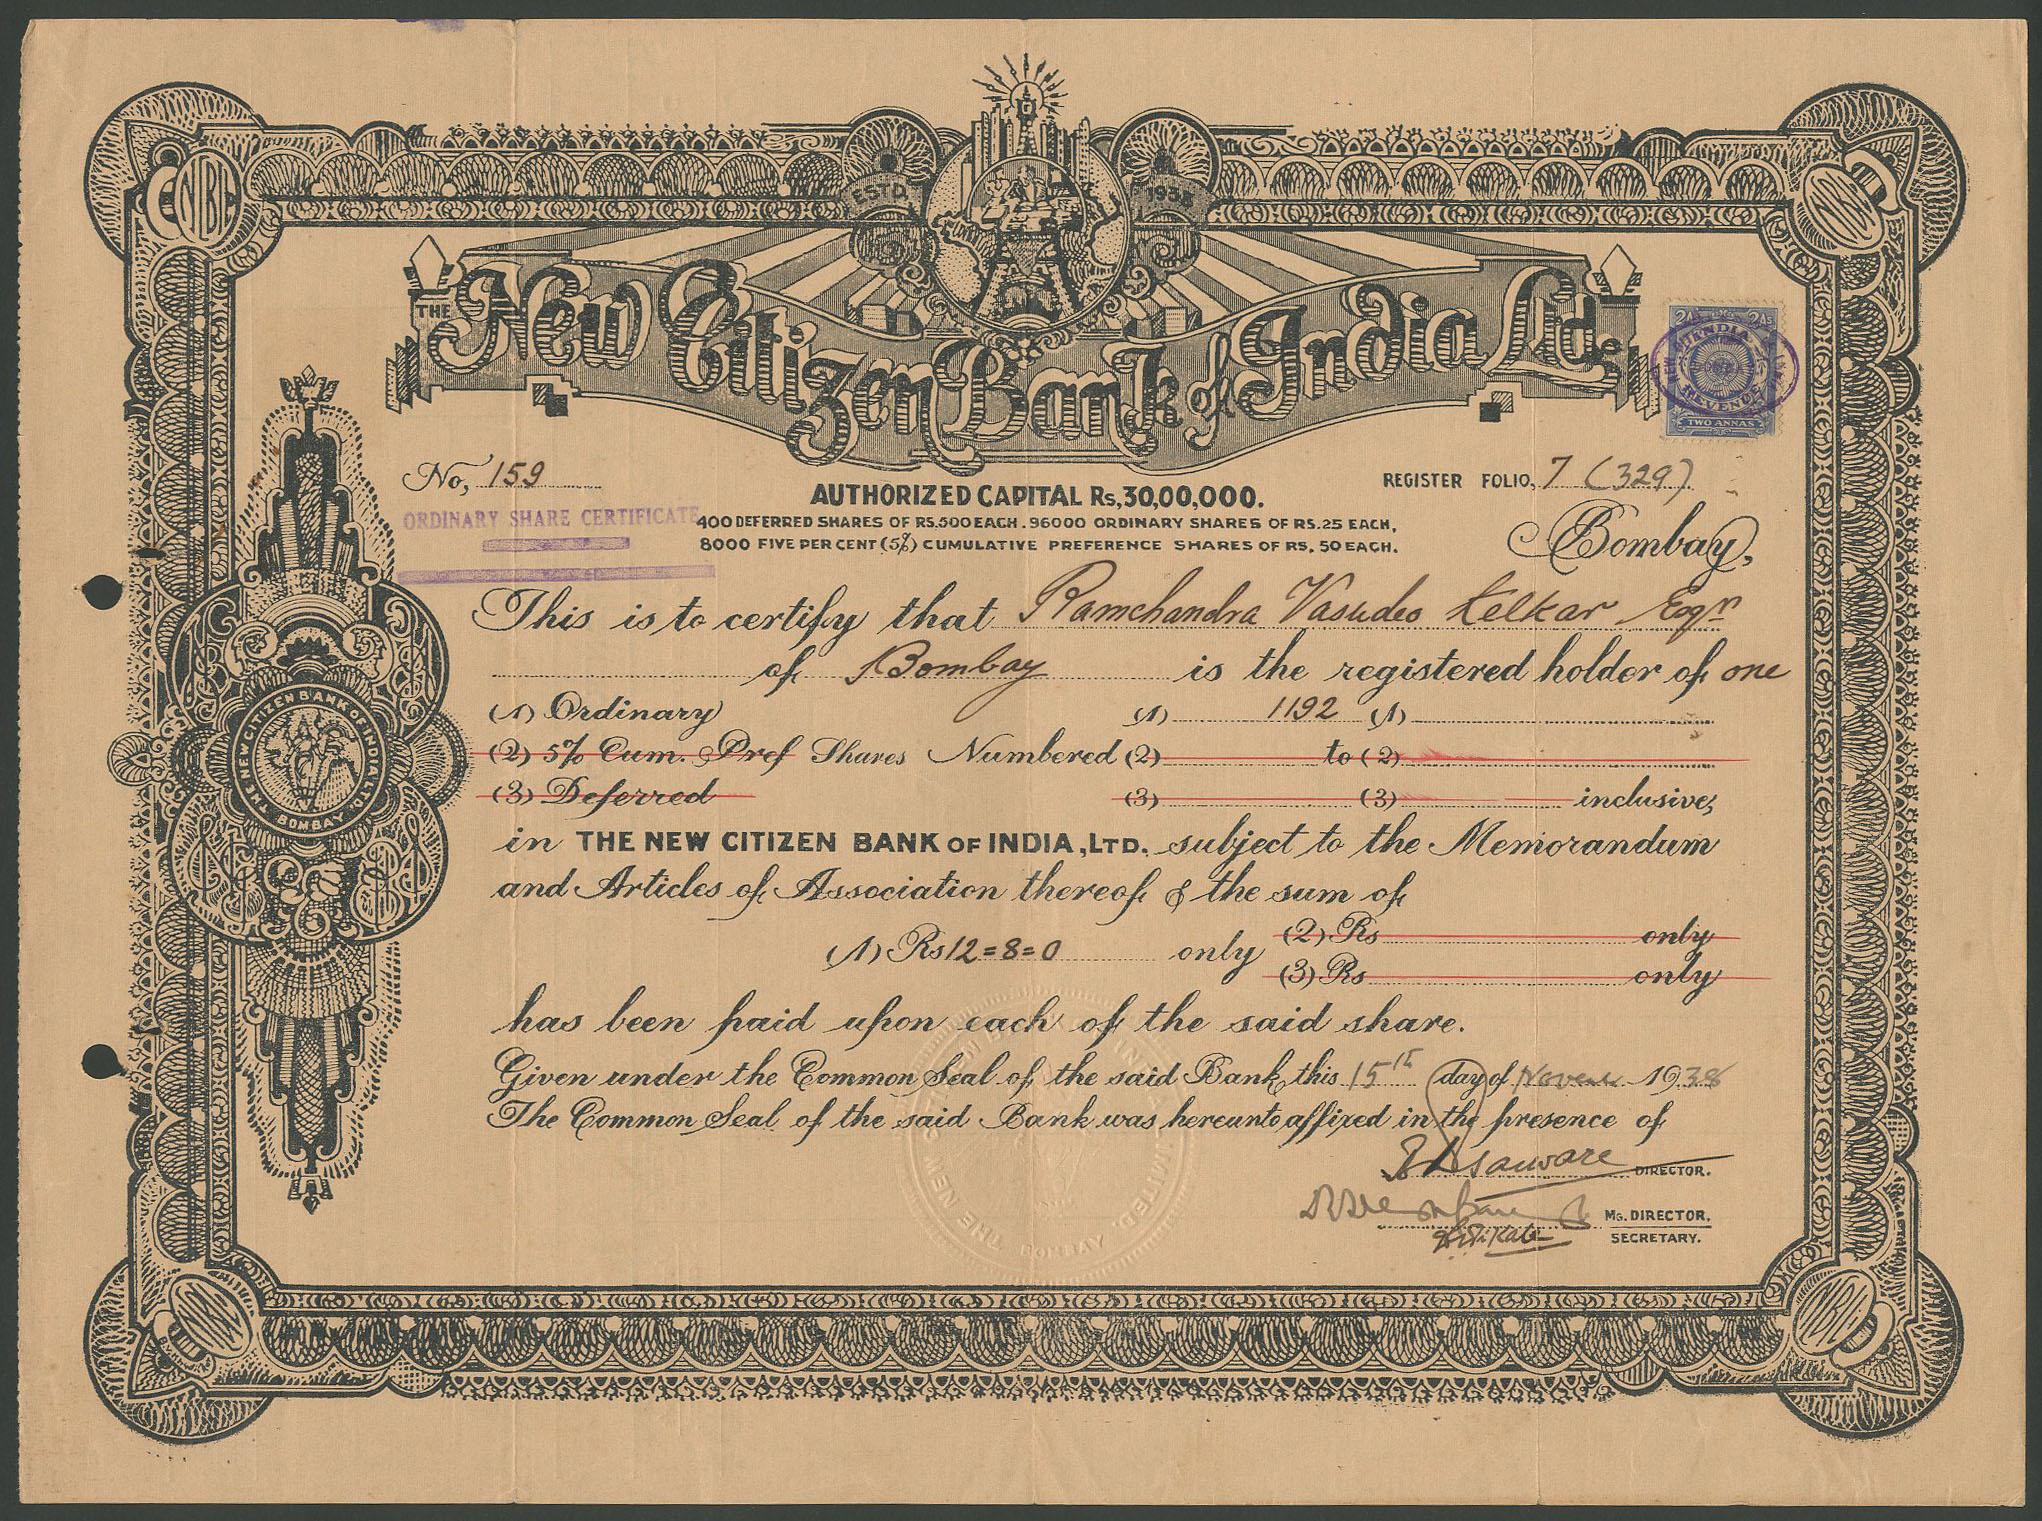 ESTD. 1938
THE New Citizen Bank of India Ltd.
2As 2As
INDIA
REVENUE
TWO ANNAS
No, 159
REGISTER FOLIO, 7 (329)
ORDINARY SHARE CERTIFICATE
AUTHORIZED CAPITAL Rs, 30,00,000.
400 DEFERRED SHARES OF RS. 500 EACH. 96000 ORDINARY SHARES OF RS. 25 EACH,
8000 FIVE PER CENT (5%) CUMULATIVE PREFERENCE SHARES OF RS. 50 EACH.
Bombay,
This is to certify that Ramchandra Vasudeo Kelkar Esqr
of Bombay is the registered holder of one
(1) Ordinary (1) 1192 (1)
(2) 5% Cum. Pref Shares Numbered (2) to (2)
(3) Deferred (3) (3) inclusive,
in THE NEW CITIZEN BANK OF INDIA, LTD. subject to the Memorandum
and Articles of Association thereof & the sum of
(1) Rs 12=8=0 only (2) Rs only
(3) Rs only
has been paid upon each of the said share.
Given under the Common Seal of the said Bank, this 15th day of Novem 1938
The Common Seal of the said Bank was hereunto affixed in the presence of
DIRECTOR.
MG. DIRECTOR.
SECRETARY.
THE NEW CITIZEN BANK OF INDIA, LTD.
BOMBAY